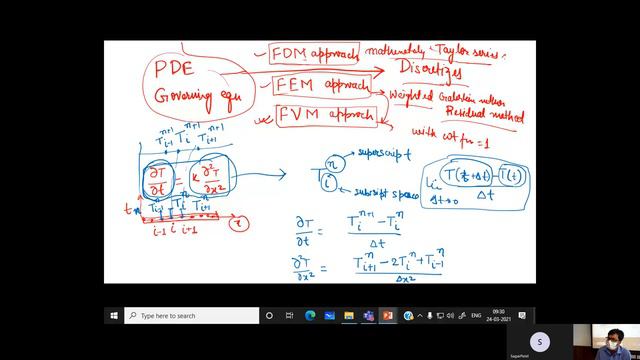 PDE
Governing equ
FDM approach
mathematically Taylor series
Discretizes
FEM approach
Weighted Galerkin
Residual method
FVM approach
with wt fn = 1
T_{i-1}^{n+1} T_i^{n+1} T_{i+1}^{n+1}
∂T/∂t = k ∂²T/∂x²
T_{i-1}^n T_i^n T_{i+1}^n
t
x
i-1 i i+1
T_i^n
superscript
subscript space
Lt Δt→0 (T(t+Δt) - T(t))/Δt
∂T/∂t = (T_i^{n+1} - T_i^n)/Δt
∂²T/∂x² = (T_{i+1}^n - 2T_i^n + T_{i-1}^n)/Δx²
Type here to search
ENG
09:30
24-03-2021
S
SagarPatel